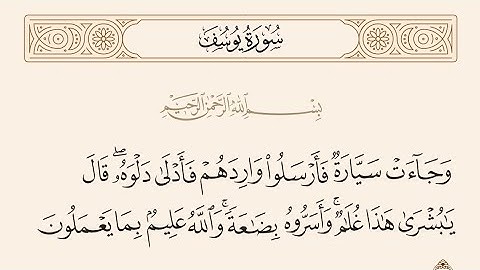 سُورَةُ يُوسُفَ
بِسْمِ اللَّهِ الرَّحْمَٰنِ الرَّحِيمِ
وَجَآءَتْ سَيَّارَةٌ فَأَرْسَلُوا۟ وَارِدَهُمْ فَأَدْلَىٰ دَلْوَهُۥ ۖ قَالَ
يَٰبُشْرَىٰ هَٰذَا غُلَٰمٌ ۚ وَأَسَرُّوهُ بِضَٰعَةً ۚ وَٱللَّهُ عَلِيمٌۢ بِمَا يَعْمَلُونَ